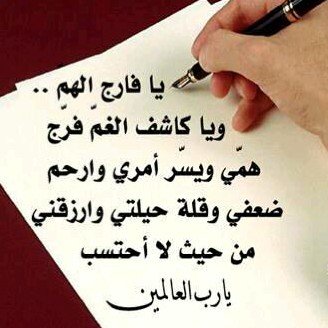 يا فارج الهمّ ..
ويا كاشف الغمّ فرج
همّي ويسّر أمري وارحم
ضعفي وقلة حيلتي وارزقني
من حيث لا أحتسب
يارب العالمين